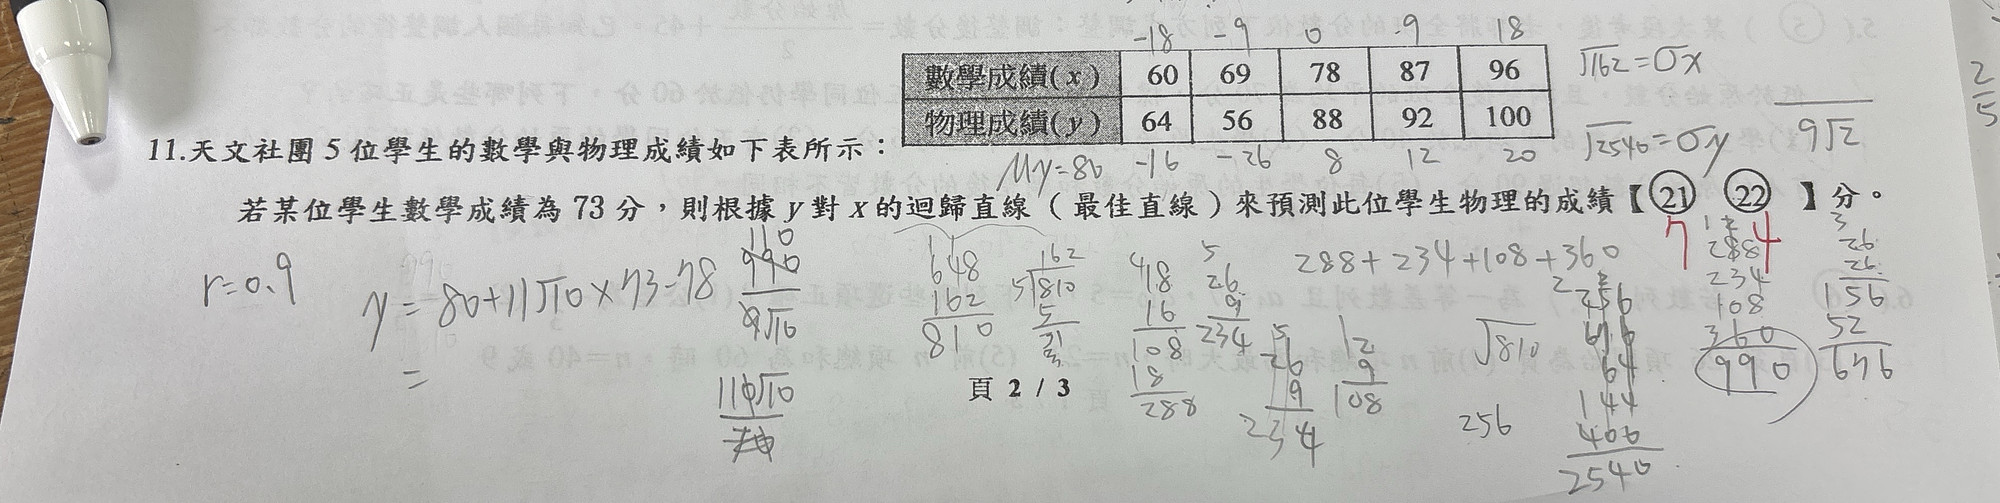 -18 -9 0 -9 18
數學成績(x) 60 69 78 87 96
√162=σx
物理成績(y) 64 56 88 92 100
√2540=σy
9√2
2
5
11.天文社團 5 位學生的數學與物理成績如下表所示：
μy=80 -16 -26 8 12 20
若某位學生數學成績為 73 分，則根據 y 對 x 的迴歸直線（最佳直線）來預測此位學生物理的成績【㉑ ㉒ 】分。
7 4
r=0.9
y=80+11√10×73-78
=
110
990
9√10
110√10
648
162
810
162
5√810
5
18
16
108
18
288
5
26
9
234
288+234+108+360
26
9
234
12
9
108
√810
256
256
676
64
144
400
2540
288
234
108
360
990
3
26
26
156
52
676
頁 2 / 3